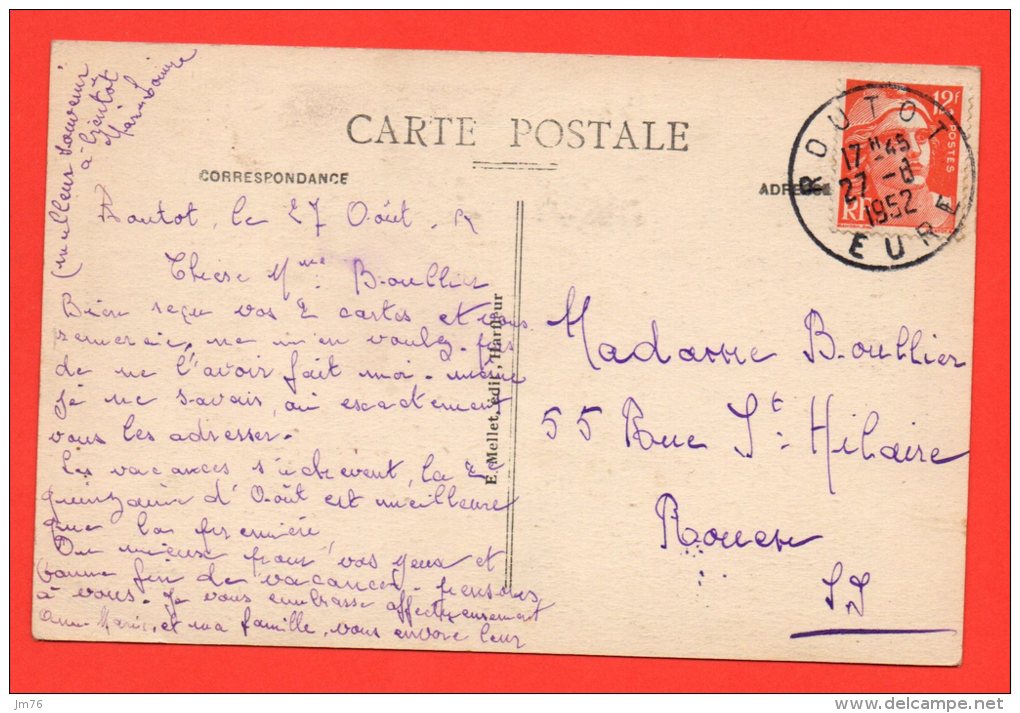 CARTE POSTALE
CORRESPONDANCE
ADRESSE
ROUTOT
17 H 45
27 - 8
1952
EURE
12F
POSTES
RF
Routot, le 27 Août
Chère Mme Boullier
Bien reçu vos 2 cartes et vous
remercie, ne m'en voulez-pas
de ne l'avoir fait moi-même
je ne savais, où exactement
vous les adresser.
Les vacances s'achèvent, la 2e
quinzaine d'Août est meilleure
que la première,
Ou mieux pour vos yeux et
bonne fin de vacances. pensons
à vous. Je vous embrasse affectueusement
Anne Marie, et ma famille, vous envoie leur
(meilleur souvenir
à bientôt
Marie Louise
E. Mellet, édit., Harfleur
Madame Boullier
55 Rue St: Hilaire
Rouen
S.I
jm76